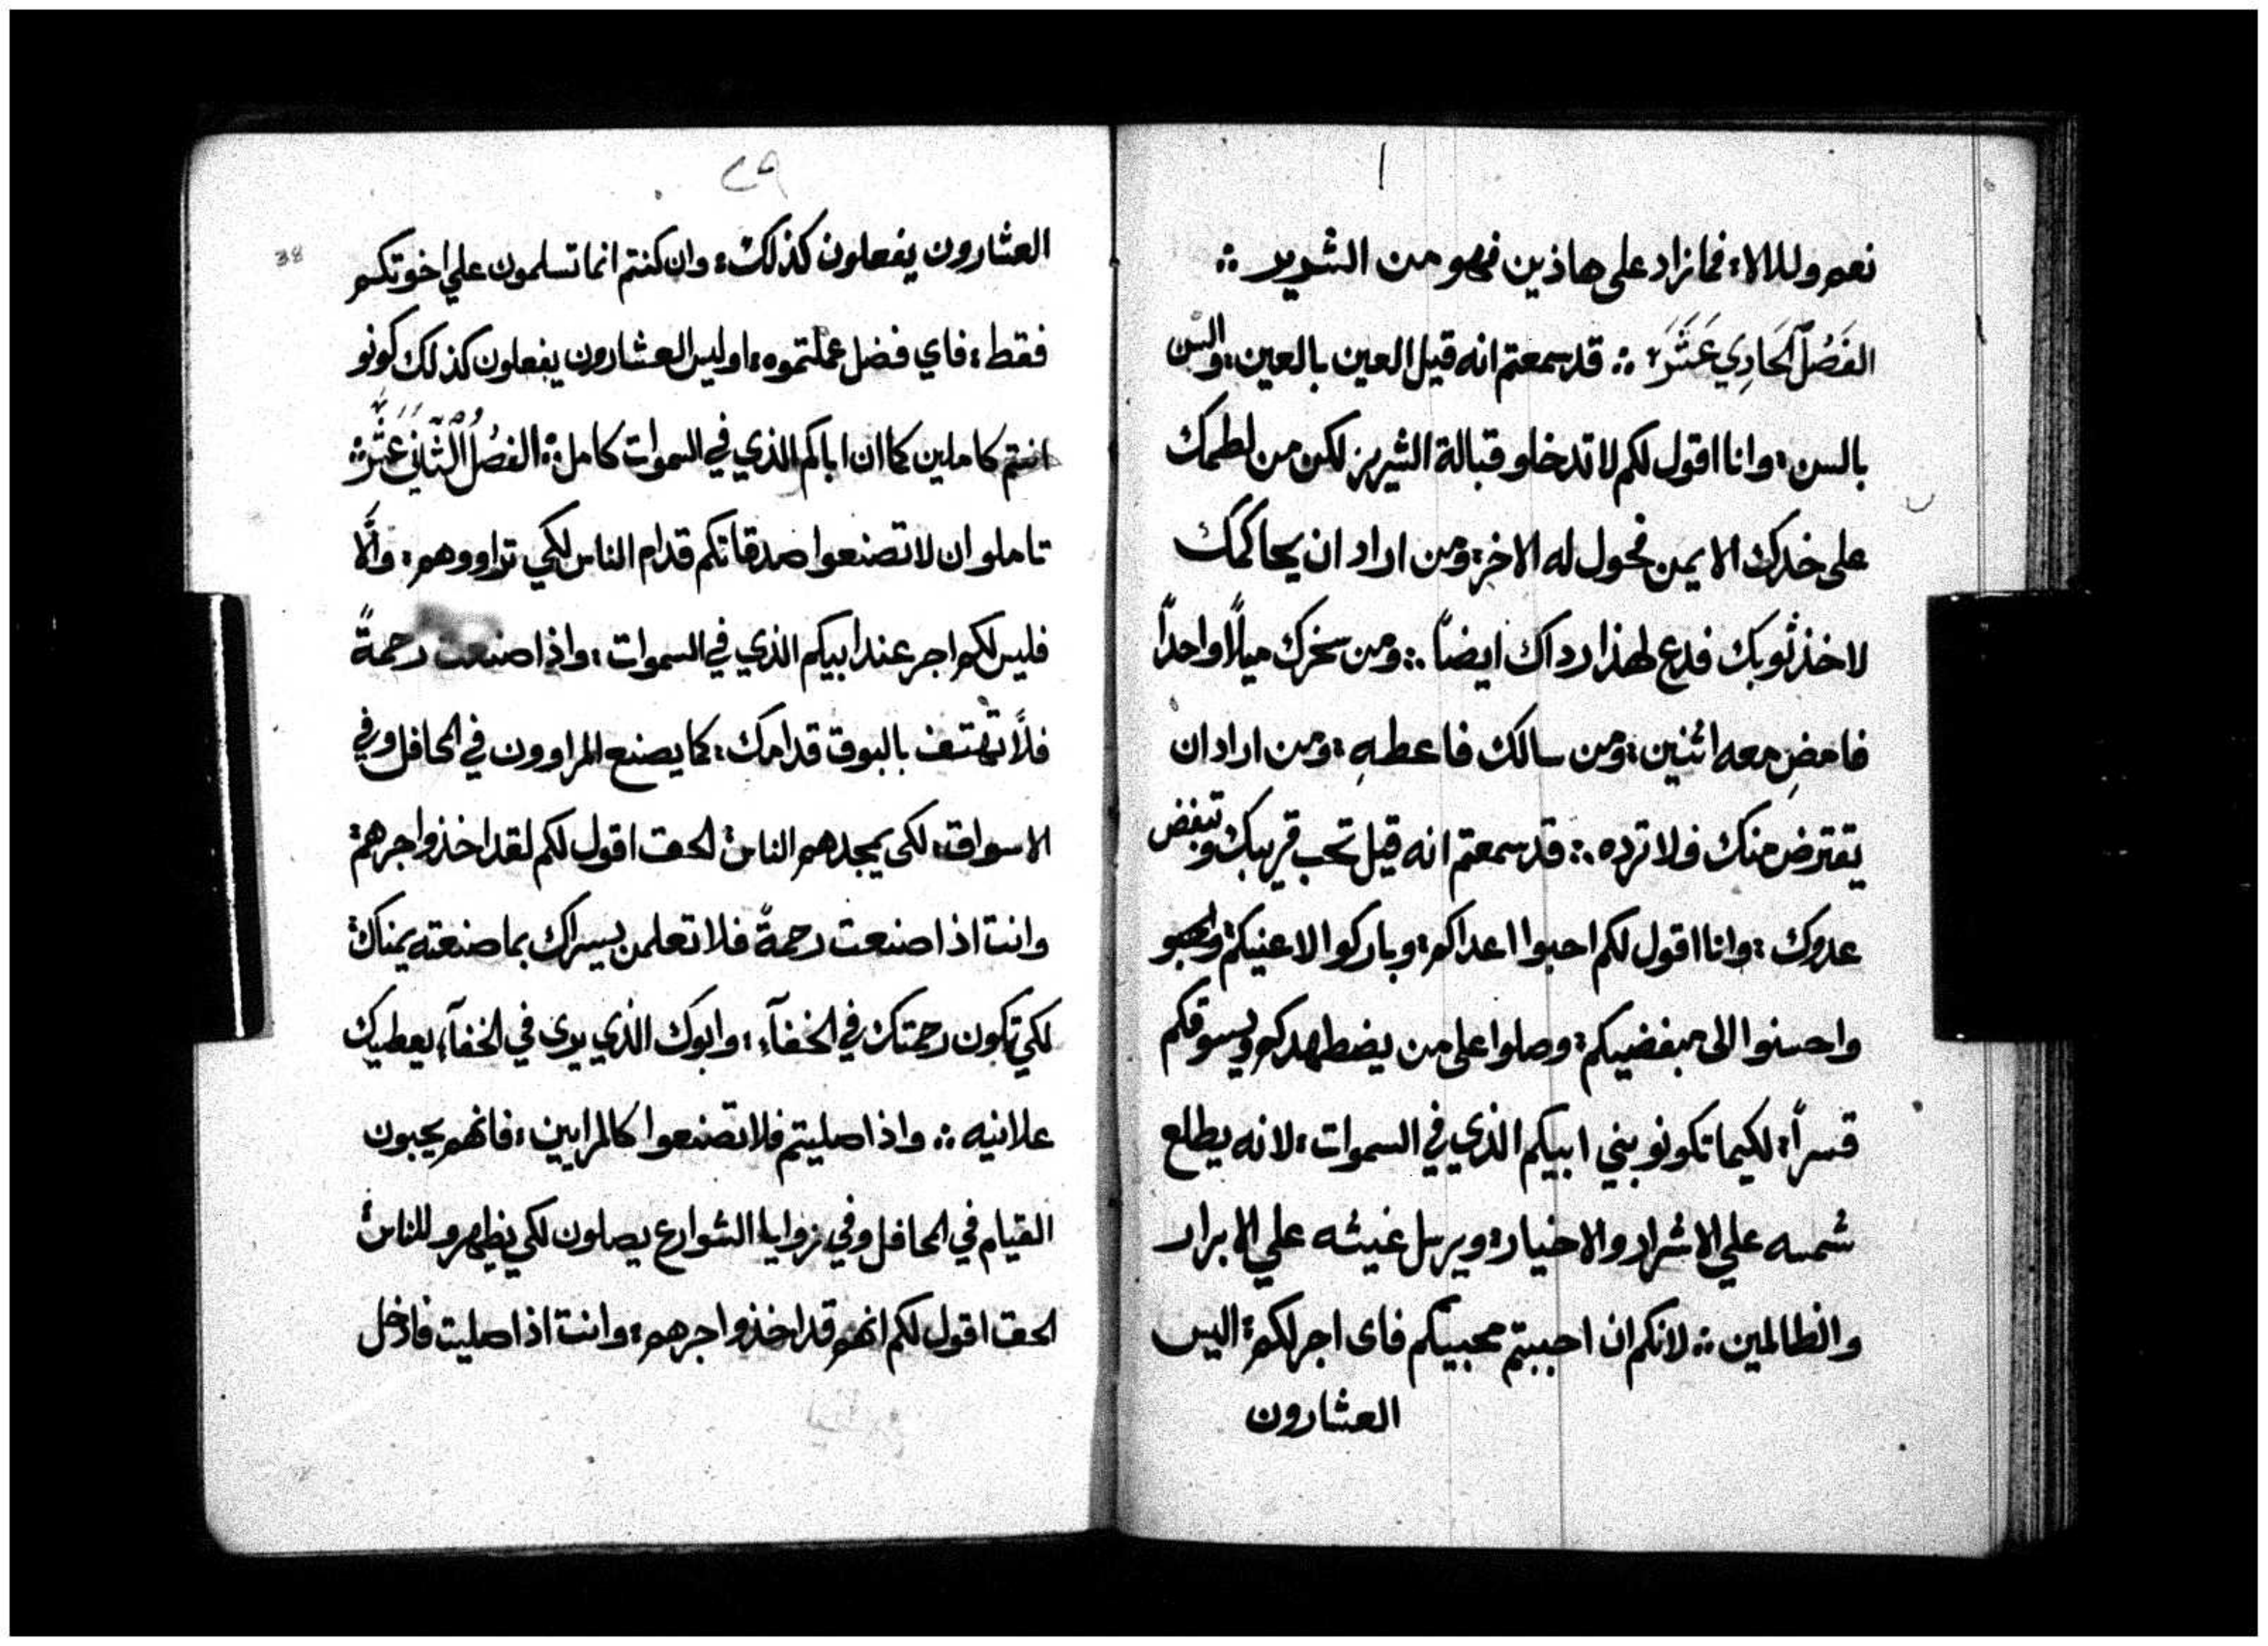 نعم وللالاء فما زاد على هاذين فهو من الشرير ∴
الفَصْلُ الحَادِي عَشَرَ ∴ قد سمعتم انه قيل العين بالعين، والسن
بالسن، وانا اقول لكم لا تدخلو قبالة الشرير لكن من لطمك
على خدك الايمن فحول له الاخر، ومن اراد ان يحاكمك
لاخذ ثوبك فدع لهذا رداك ايضاً ∴ ومن سخرك ميلاً واحداً
فامضِ معه اثنين، ومن سالك فاعطهِ، ومن اراد ان
يقترض منك فلا ترده ∴ قد سمعتم انه قيل تحب قريبك وتبغض
عدوك، وانا اقول لكم احبوا اعداكم، وباركوا لاعنيكم،
واحسنوا الى مبغضيكم، وصلوا على من يضطهدكم ويسوقكم
قسراً، لكيما تكونو بني ابيكم الذي في السموات، لانه يطلع
شمسه علي الاشرار والاخيار، ويرسل غيثه علي الابرار
والظالمين ∴ لانكم ان احببتم محبيكم فاى اجر لكم، اليس
العشارون
٢٩
38
العشارون يفعلون كذلك، وان كنتم انما تسلمون علي اخوتكم
فقط، فاي فضل عملتموه، اوليس العشارون يفعلون كذلك كونو
انتم كاملين كما ان اباكم الذي في السموات كامل ∴ الفصْلُ الثَّانِي عَشَرَ ∴
تاملو ان لا تصنعوا صدقاتكم قدام الناس لكي تراووهم، والَّا
فليس لكم اجر عند ابيكم الذي في السموات، واذا صنعت رحمةً
فلا تهتف بالبوق قدامك، كما يصنع المراوون في المحافل وفي
الاسواق، لكى يمجدهم الناس، الحق اقول لكم لقد اخذوا اجرهم،
وانت اذا صنعت رحمةً فلا تعلمن يسراك بما صنعته يمناك،
لكي تكون رحمتك في الخفآء، وابوك الذي يرى في الخفآء يعطيك
علانيه ∴ واذا صليتم فلا تصنعوا كالمرايين، فانهم يحبون
القيام في المحافل وفي زوايا الشوارع يصلون لكي يظهرو للناس،
الحق اقول لكم انهم قد اخذوا اجرهم، وانت اذا صليت فادخل